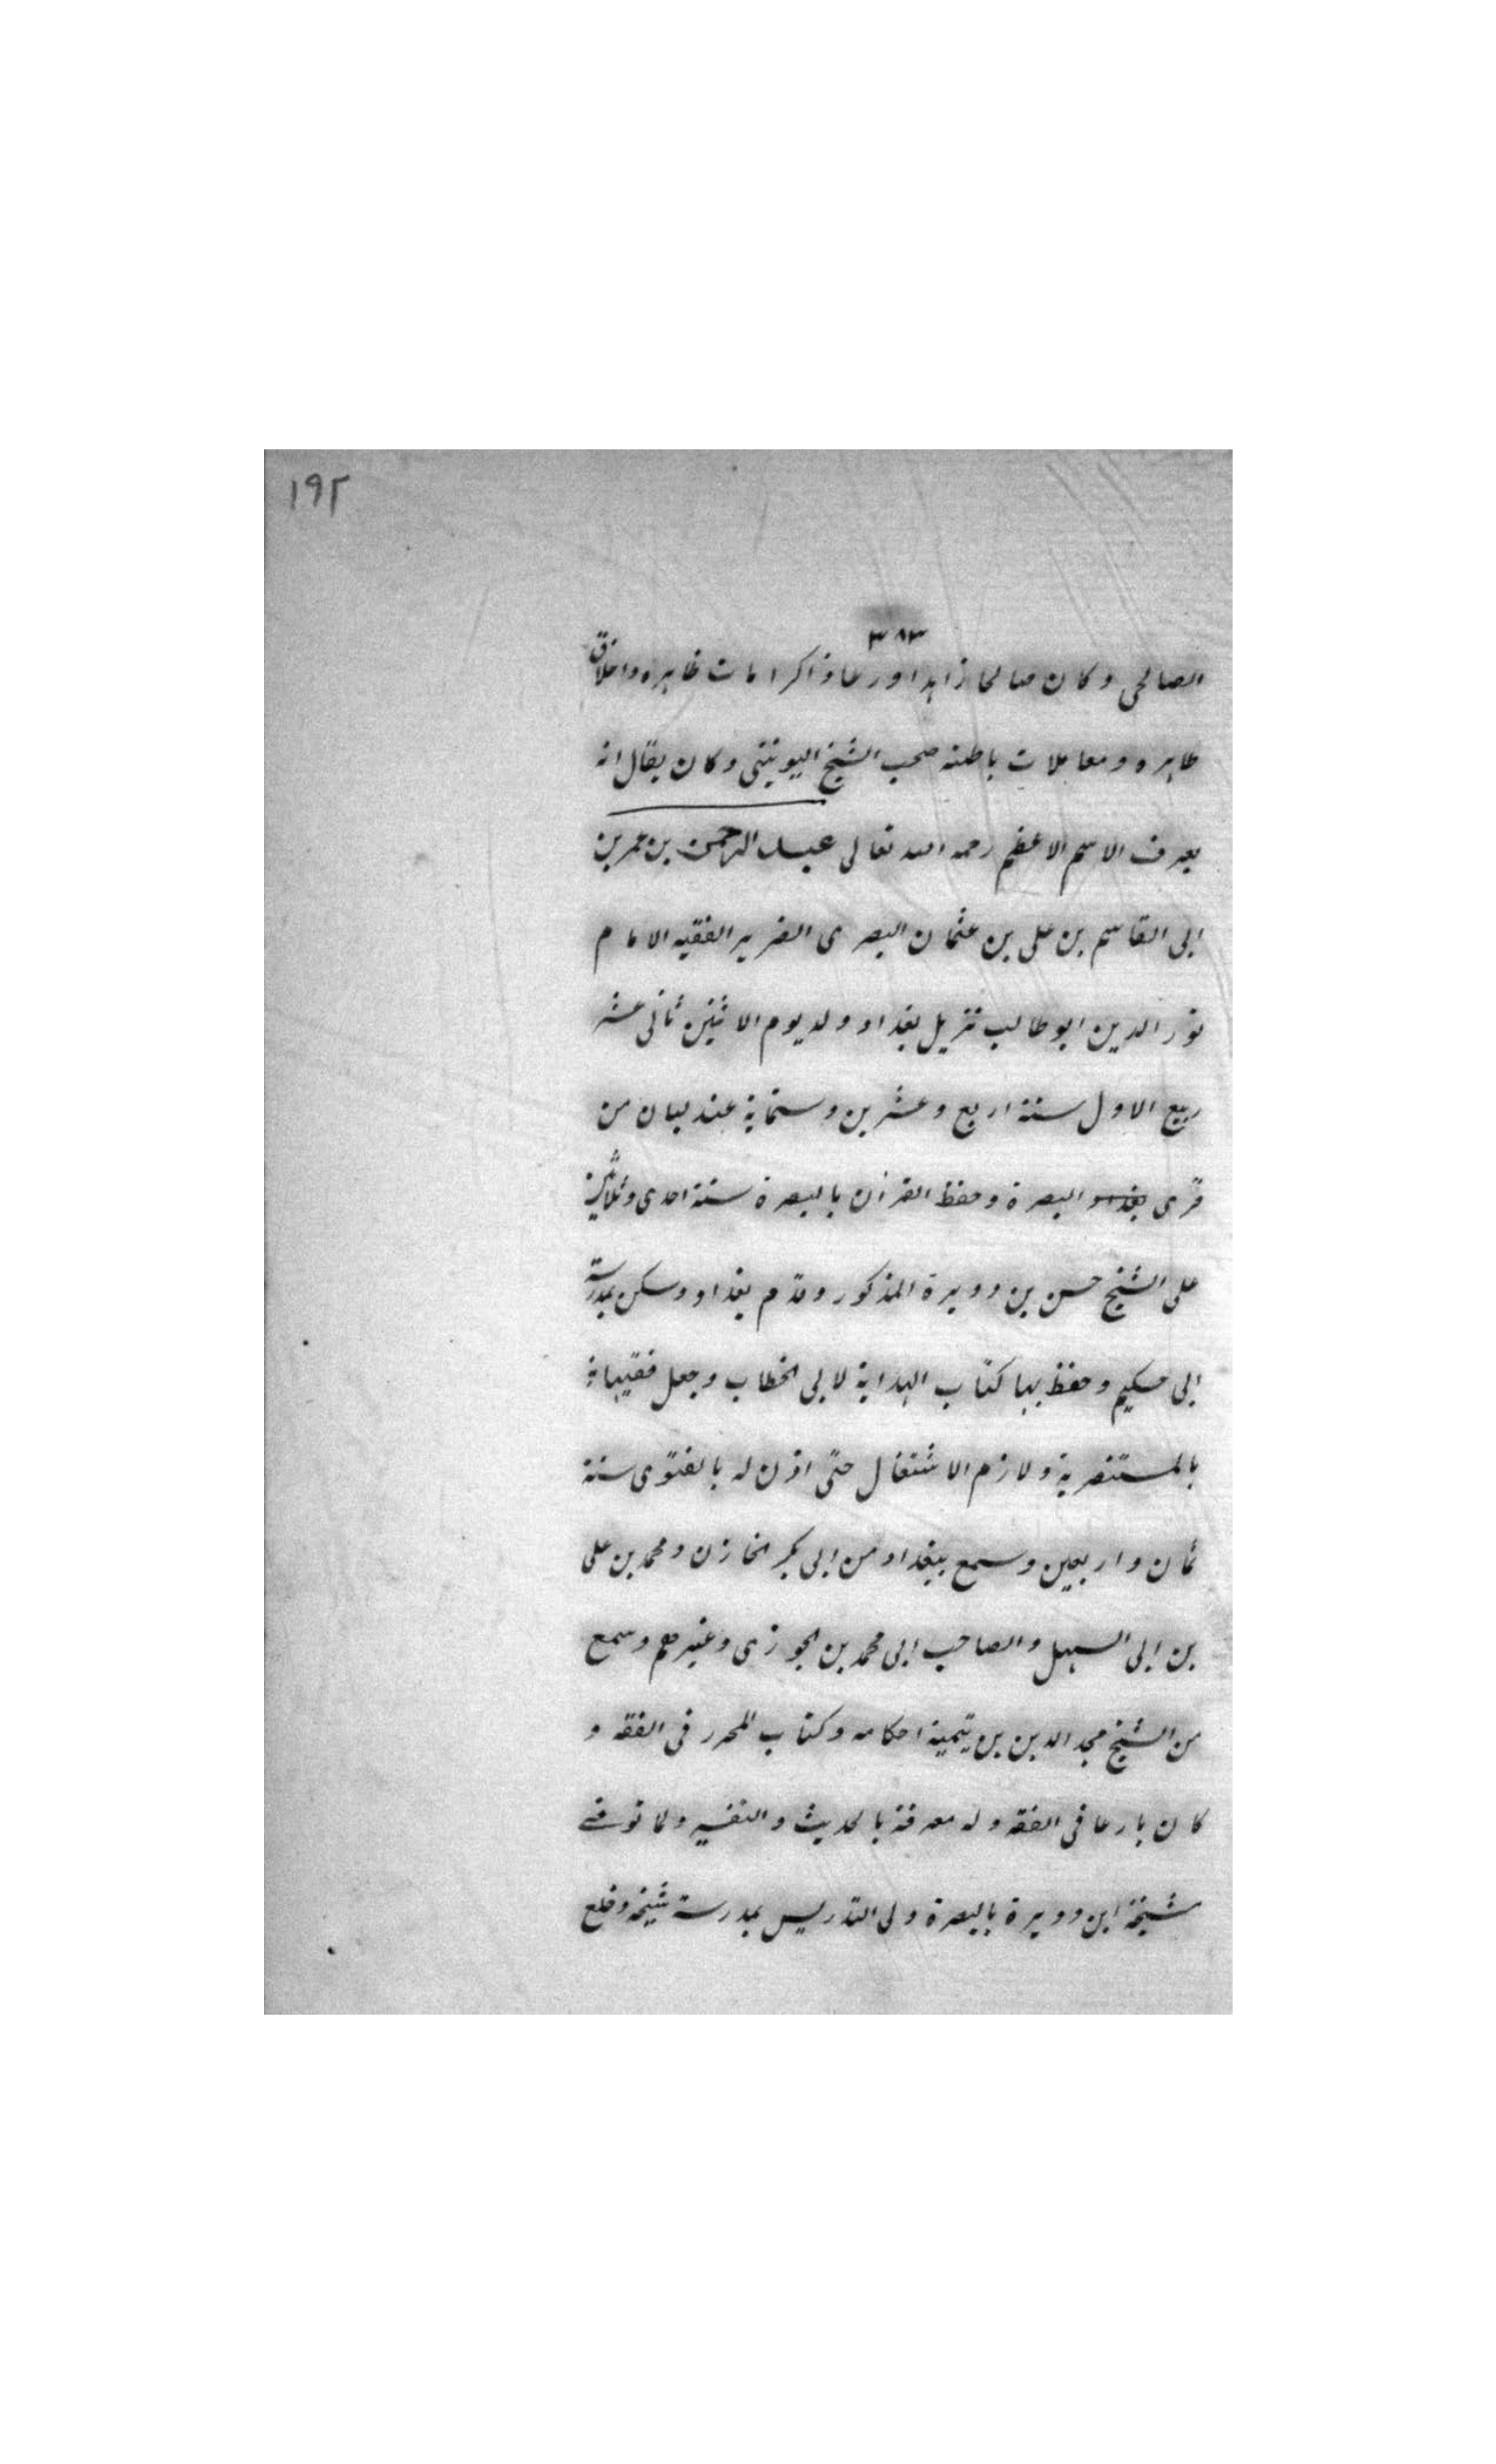 ١٩٢
٣٨٣
الصالحى وكان صالحا زاهدا ورعا وذاكرامات ظاهره واخلاق
طاهره ومعاملات باطنه صحب الشيخ اليونينى وكان يقال انه
يعرف الاسم الاعظم رحمه الله تعالى عبد الرحمن بن عمر بن
ابى القاسم بن على بن عثمان البصرى الضرير الفقيه الامام
نور الدين ابو طالب نزيل بغداد ولد يوم الاثنين ثانى عشر
ربيع الاول سنة اربع وعشرين وستماية عند لبيان من
قرى بغداد البصرة وحفظ القرآن بالبصرة سنة احدى وثلاثين
على الشيخ حسن بن دويرة المذكور وقدم بغداد وسكن بمدرسة
ابى حكيم وحفظ بها كتاب الهداية لابى الخطاب وجعل فقيها
بالمستنصرية ولازم الاشتغال حتى اذن له بالفتوى سنة
ثمان واربعين وسمع ببغداد من ابى بكر الخازن ومحمد بن على
بن ابى السهل والصاحب ابى محمد بن الجوزى وغيرهم وسمع
من الشيخ مجد الدين بن تيمية احكامه وكتاب المحرر فى الفقه و
كان بارعا فى الفقه وله معرفة بالحديث والتفسير ولما توفى
شيخه ابن دويرة بالبصرة ولى التدريس بمدرسة شيخه وخلع